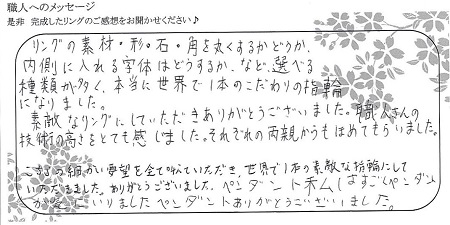 職人へのメッセージ
是非 完成したリングのご感想をお聞かせください♪
リングの素材・形・石・角を丸くするかどうか、
内側に入れる字体はどうするか、など、選べる
種類が多く、本当に世界で1本のこだわりの指輪
になりました。
素敵なリングにしていただきありがとうございました。職人さんの
技術の高さをとても感じました。それぞれの両親からもほめてもらいました。
こちらの細かい要望を全て叶えていただき、世界で1本の素敵な指輪にして
いただきました。ありがとうございました。ペンダント
すごくペンダント
が気にいりましたペンダントありがとうございました。